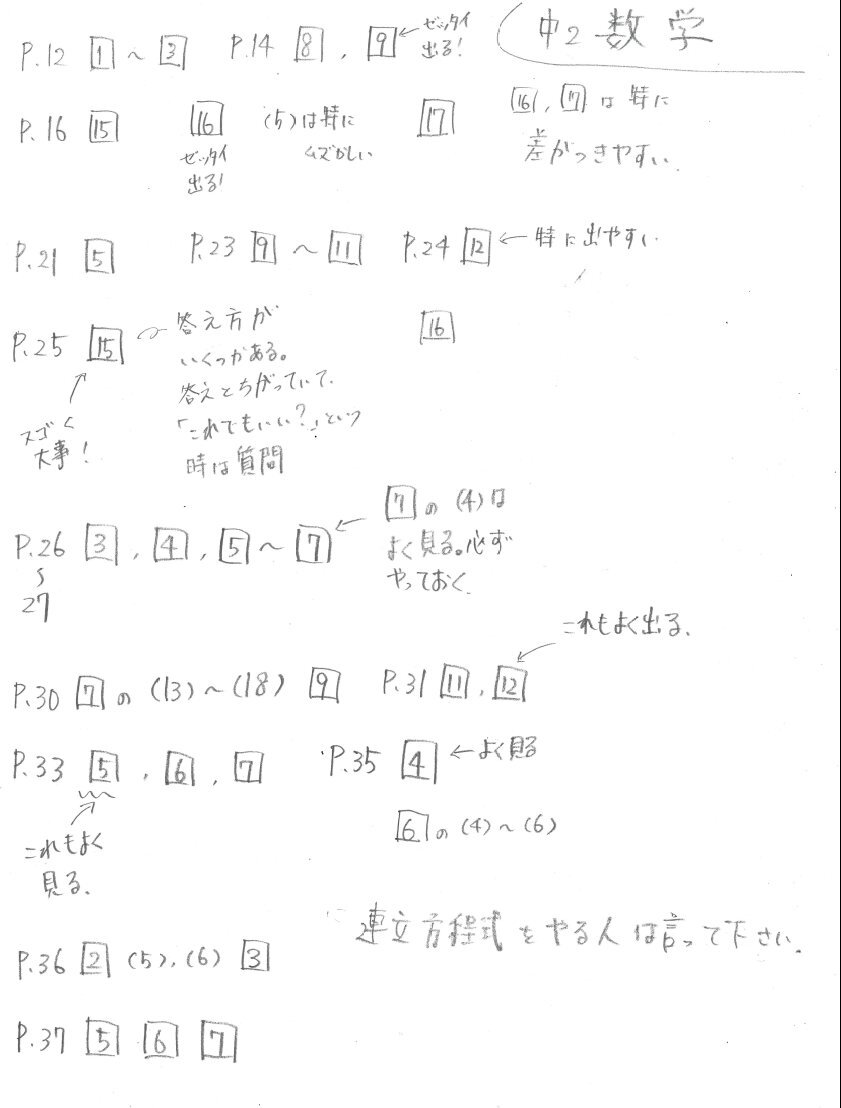 中2 数学
P.12 1 ～ 3 P.14 8 , 9 ← ゼッタイ
出る!
P.16 15 16 (5)は特に 17 16 , 17 は 特に
ゼッタイ ムズかしい 差がつきやすい.
出る!
P.21 5 P.23 9 ～ 11 P.24 12 ← 特に出やすい.
P.25 15 答え方が 16
いくつかある。
答えとちがっていて.
スゴく 「これでもいい?」という
大事! 時は質問
P.26 3 , 4 , 5 ～ 7 ← 7 の (4)は
よく見る。必ず
やっておく.
～
27
これもよく出る.
P.30 7 の (13)～(18) 9 P.31 11 , 12
P.33 5 , 6 , 7 P.35 4 ← よく見る
6 の (4)～(6)
これもよく
見る.
連立方程式をやる人は言って下さい.
P.36 2 (5),(6) 3
P.37 5 6 7